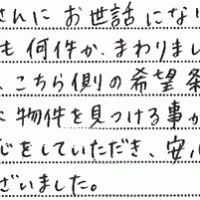 さんに お世話 になり
も 何件か、まわりまし
、こちら側の希望条
に 物件を見つける事が
心をしていただき、安心
ざいました。